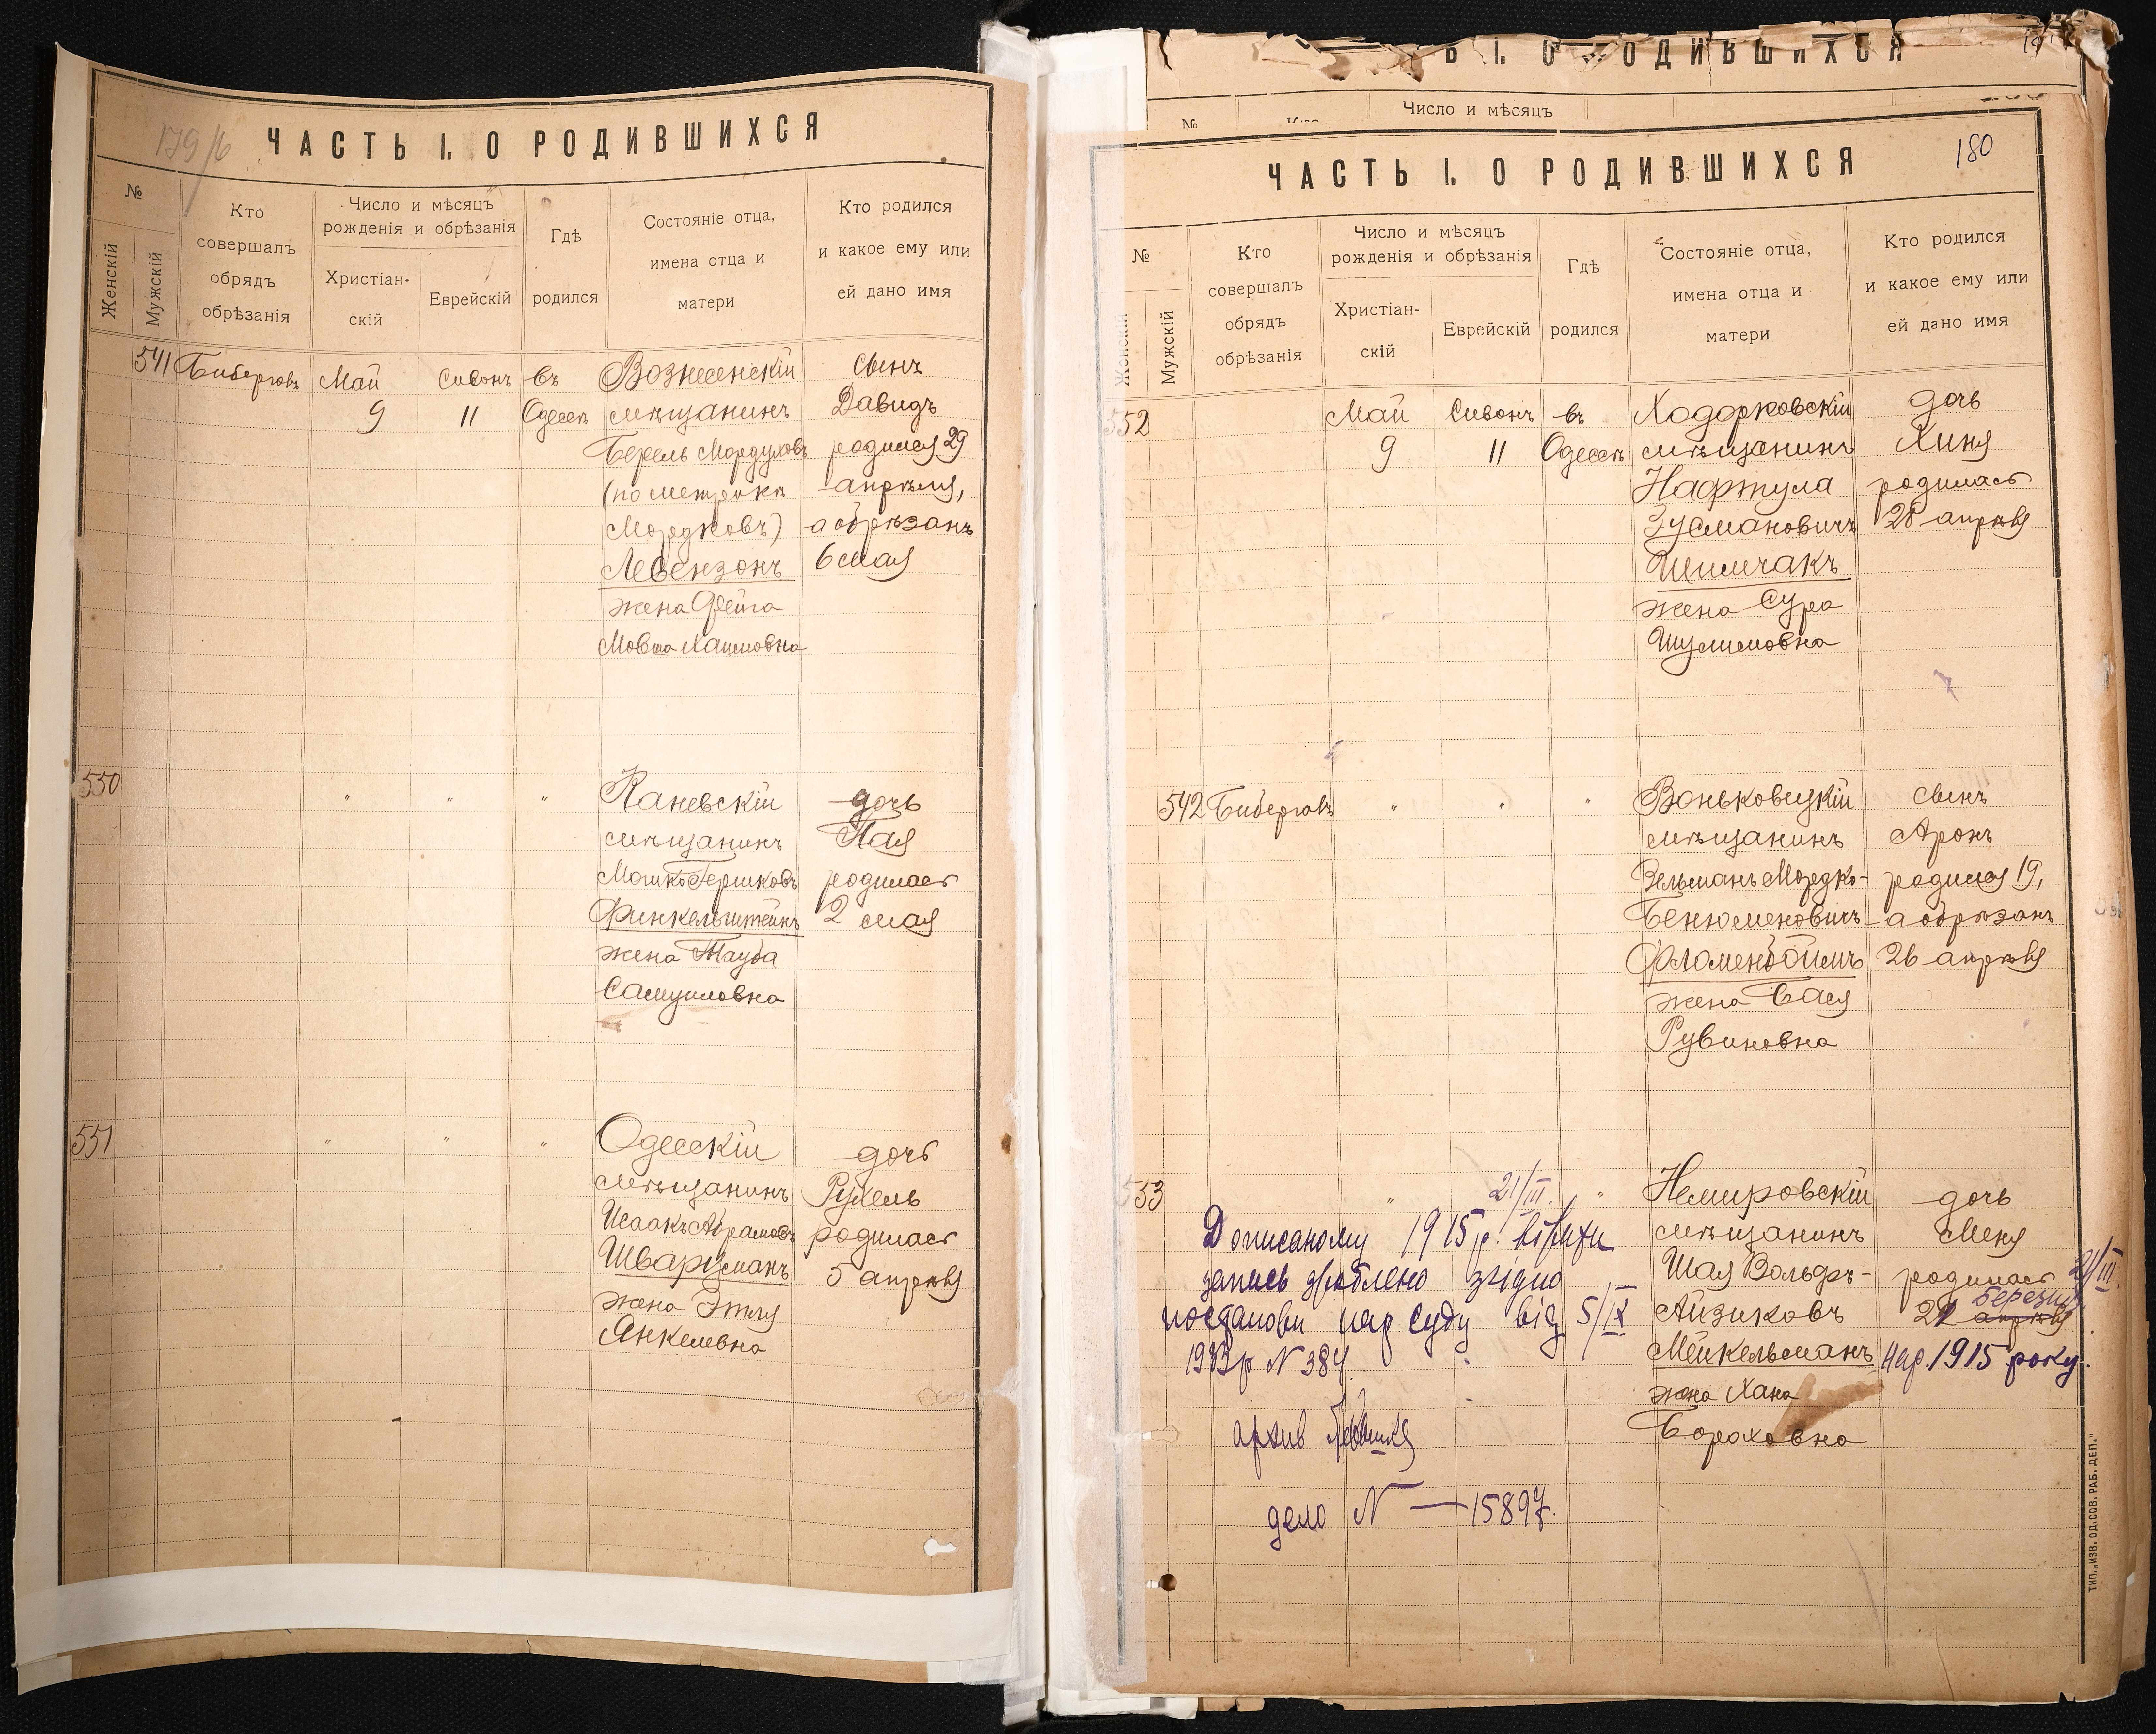 179/б
ЧАСТЬ I. О РОДИВШИХСЯ
№
Женскій
Мужскій
Кто
совершалъ
обрядъ
обрѣзанія
Число и мѣсяцъ
рожденія и обрѣзанія
Христіан-
скій
Еврейскій
Гдѣ
родился
Состояніе отца,
имена отца и
матери
Кто родился
и какое ему или
ей дано имя
541 Май Сивонъ въ Вознесенскій сынъ
9 11 Одессѣ мѣщанинъ Давидъ
Берель Мордуховъ родился 29
(по метрикѣ апрѣля,
Мордковъ) а обрѣзанъ
Левензонъ 6 мая
жена Фейга
Мовша Хаимовна
550 " " " Каневскій дочь
мѣщанинъ Пая
Мошко Гершковъ родилась
Финкельштейнъ 2 мая
жена Тауба
Самуиловна
551 " " " Одесскій дочь
мѣщанинъ Рухель
Исаакъ Абрамовъ родилась
Шварцманъ 5 апрѣля
жена Этля
Янкелевна
Ь I. О РОДИВШИХСЯ
Число и мѣсяцъ
№
ЧАСТЬ I. О РОДИВШИХСЯ
180
№
Женскій
Мужскій
Кто
совершалъ
обрядъ
обрѣзанія
Число и мѣсяцъ
рожденія и обрѣзанія
Христіан-
скій
Еврейскій
Гдѣ
родился
Состояніе отца,
имена отца и
матери
Кто родился
и какое ему или
ей дано имя
552 Май Сивонъ въ Ходорковскій дочь
9 11 Одессѣ мѣщанинъ Хиня
Нафтула родилась
Зусмановичъ 28 апрѣля
Шимчакъ
жена Сура
Шулимовна
542 " " " Воньковецкій сынъ
мѣщанинъ Аронъ
Зельманъ Мордко- родился 19,
Бенюменовичъ а обрѣзанъ
Фломенбоймъ 26 апрѣля
жена Бася
Рувиновна
553 " 21/III. " Немировскій дочь
Дописаному 1915 р. мѣщанинъ Меня
запись зроблено згідно Шая Вольфъ- родилась 21/III.
постанови нар суду від 5/IX Айзиковъ 21 апрѣля березня
1933 р N 384. Мейкельманъ нар. 1915 року.
жена Хана
архив Бораховна
дело N — 15897.
ТИП. „ИЗВ. ОД. СОВ. РАБ. ДЕП."